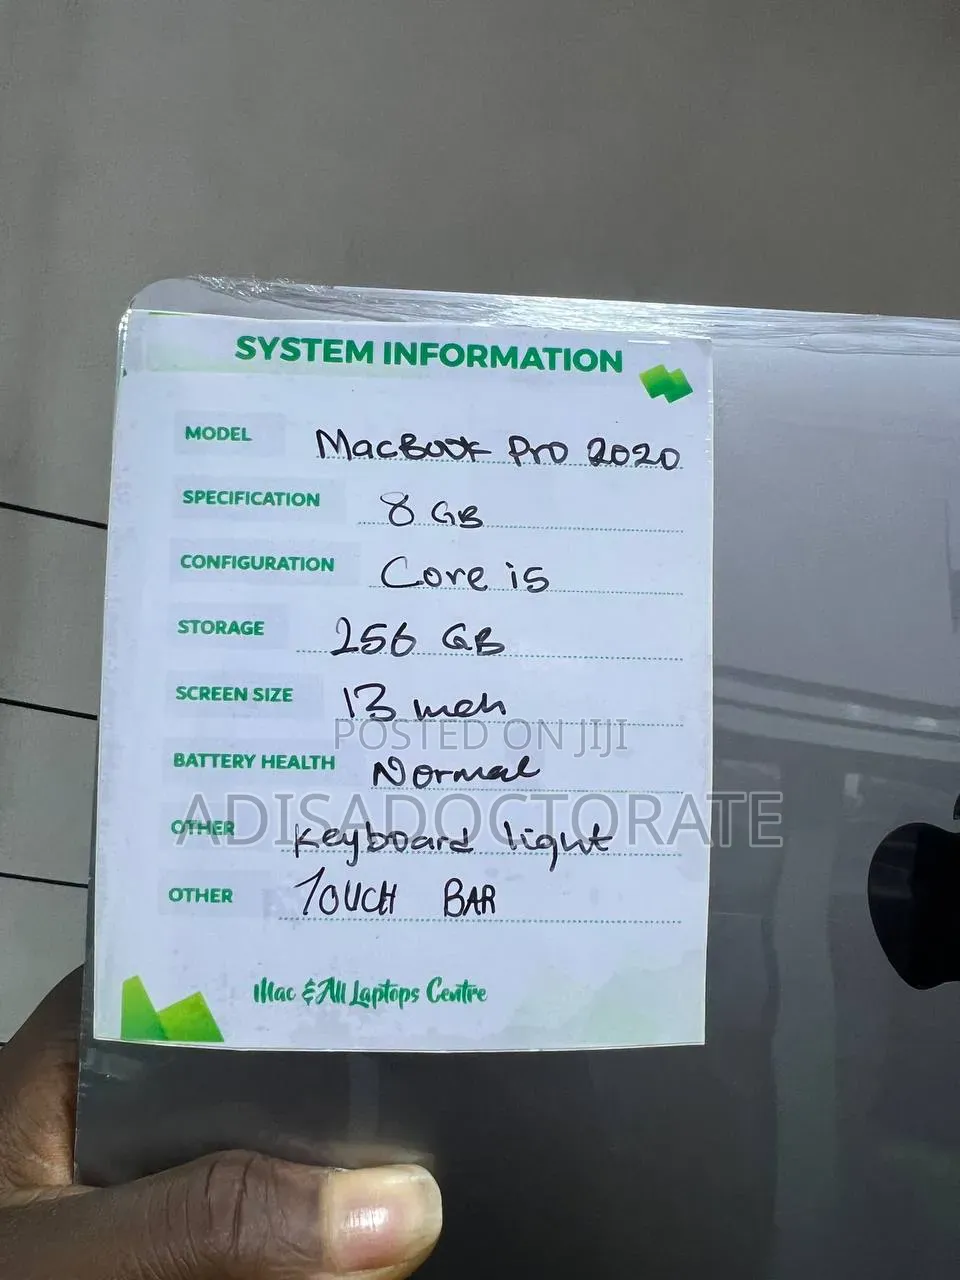 SYSTEM INFORMATION
MODEL MacBook Pro 2020
SPECIFICATION 8 GB
CONFIGURATION Core i5
STORAGE 256 GB
SCREEN SIZE 13 inch
POSTED ON JIJI
BATTERY HEALTH Normal
ADISADOCTORATE
OTHER Keyboard light
OTHER TOUCH BAR
Mac & All Laptops Centre